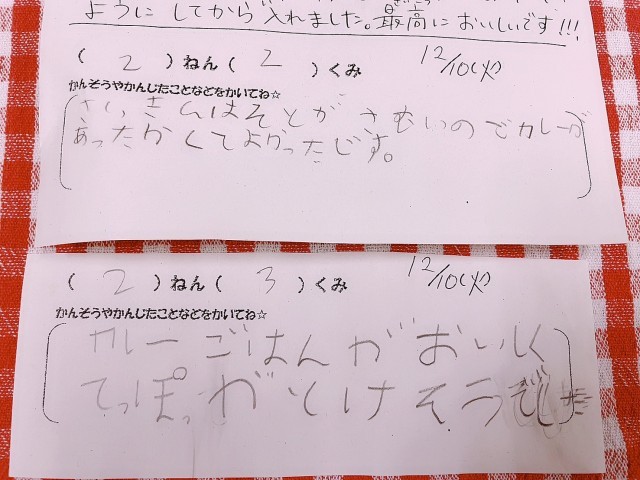 ようにしてから入れました。最高においしいです!!!
(2)ねん(2)くみ 12/10(火)
かんそうやかんじたことなどをかいてね☆
さいきんはそとがさむいのでカレーが
あったかくてよかったです。
(2)ねん(3)くみ 12/10(火)
かんそうやかんじたことなどをかいてね☆
カレーごはんがおいしく
てっぽっがとけそうでし